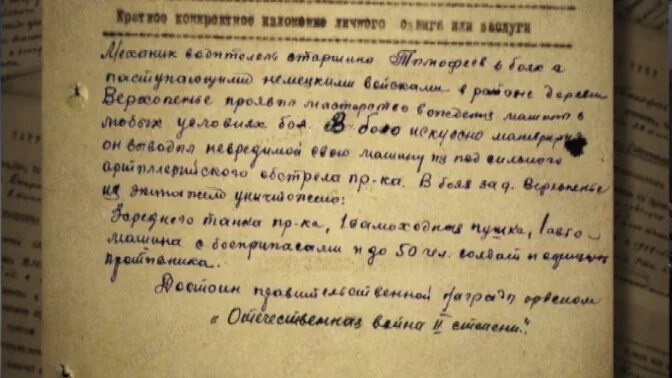 Краткое конкретное изложение личного подвига или заслуги
Механик водитель старшина Тимофеев в боях с
наступающими немецкими войсками в районе деревни
Верхопенье проявил мастерство вождения машины в
любых условиях боя. В бою искусно маневрируя
он выводил невредимой свою машину из под сильного
артиллерийского обстрела пр-ка. В боях за д. Верхопенье
экипажем уничтожено:
3 среднего танка пр-ка, 1 самоходная пушка, 1 авто-
машина с боеприпасами и до 50 чел. солдат и офицеров
противника.
Достоин правительственной награды орденом
„Отечественная война II степени".